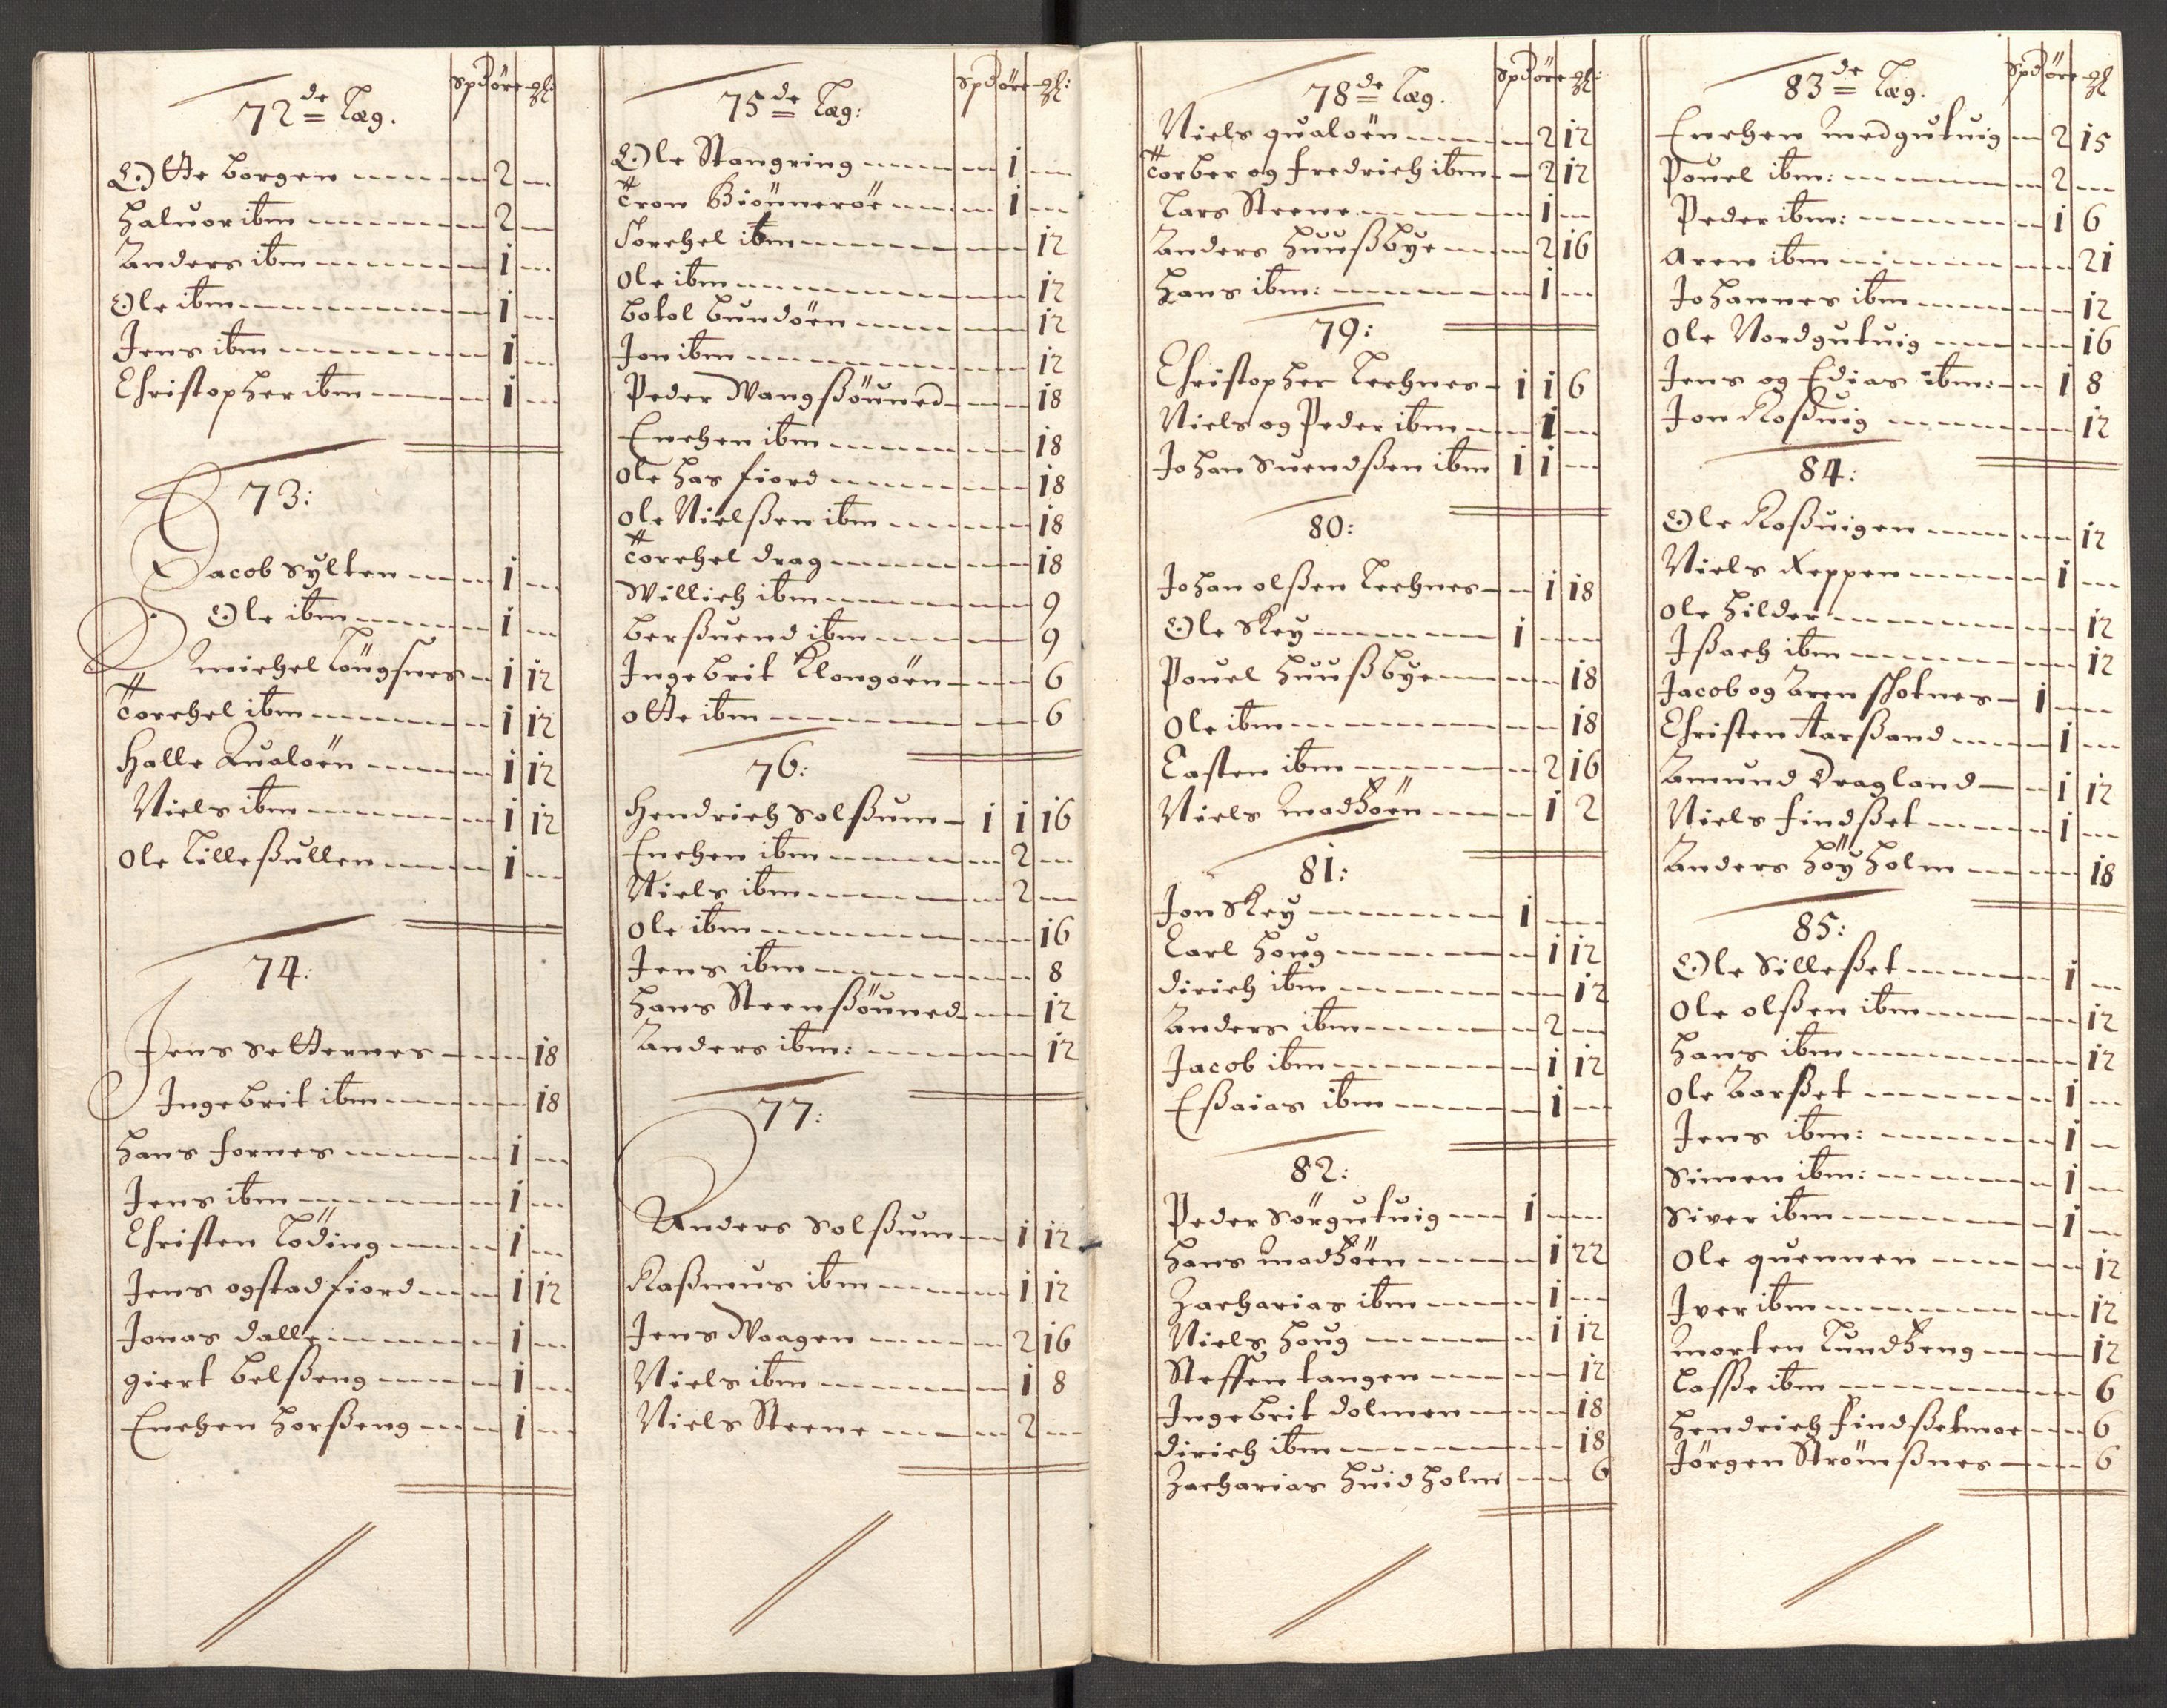 72de Læg. Spd øre gl:
Otte borgen 2
Haluor ibm 2
Anders ibm 1
Ole ibm 1
Jens ibm 1
Christopher ibm 1
73:
Jacob Sylten 1
Ole ibm 1
Michel Löngsnes 1 12
Torchel ibm 1 12
Halle Qualöen 1 12
Niels ibm 1 12
Ole Lilleßullen 1
74:
Jens Setternes 18
Ingebrit ibm 18
Hans fornes 1
Jens ibm 1
Christen Löding 1
Jens ogstadfiord 1 12
Jonas dalle 1
giert belßeng 1
Enchen horßeng 1
75de Læg: Spd øre gl:
Ole Stangring 1
Tron Biönneröe 1
Torchel ibm 12
Ole ibm 12
botol bundöen 12
Jon ibm 12
Peder Wangßöuned 18
Enchen ibm 18
Ole has fiord 18
Ole Nielßen ibm 18
Torchel drag 18
Willich ibm 9
berßuend ibm 9
Ingebrit Klongöen 6
otte ibm 6
76:
Hendrich Solßum 1 1 16
Enchen ibm 2
Niels ibm 2
Ole ibm 16
Jens ibm 8
Hans Steenßöuned 12
Anders ibm: 12
77:
Anders Solßum 1 12
Raßmus ibm 1 12
Jens Waagen 2 16
Niels ibm 1 8
Niels Steene 2
78de Læg. Spd øre gl:
Niels qualöen 2 12
Torber og fredrich ibm 2 12
Lars Steene 1
Anders Huußbye 2 16
Hans ibm: 1
79:
Christopher Lechnes 1 1 6
Niels og Peder ibm 1
Johan Suendßen ibm 1 1
80:
Johan olßen Lechnes 1 18
Ole Skey 1
Pouel Huußbye 18
Ole ibm 18
Casten ibm 2 16
Niels madhöen 1 2
81:
Jon Skey 1
Carl houg 1 12
dirich ibm 12
Anders ibm 2
Jacob ibm 1 12
Eßaias ibm 1
82:
Peder Sörgutuig 1
Hans madhöen 1 22
Zacharias ibm 1
Niels houg 1 12
Steffen tangen 12
Ingebrit dolmen 18
dirich ibm 18
Zacharias huidholm 6
83de Læg. Spd øre gl
Enchen medgutuig 2 15
Pouel ibm: 2
Peder ibm: 1 6
Aren ibm 21
Johannes ibm 12
Ole Nordgutuig 16
Jens og Edias ibm: 1 8
Jon Roßuig 12
84:
Ole Roßuigen 12
Niels Keppen 1
Ole hilder 12
Ißach ibm 12
Jacob og Aren Skotnes 1
Christen Aarßand 1
Amund Dragland 1 12
Niels findßet 1
Anders höyholm 18
85:
Ole Silleßet 1
Ole olßen ibm 12
Hans ibm 12
Ole Aarßet 1
Jens ibm: 1
Simen ibm: 1
Siver ibm 1
Ole quennen 12
Iver ibm 12
Morten Lundheng 12
Laße ibm 6
Hendrich findßetmoe 6
Jörgen Strömßnes 6